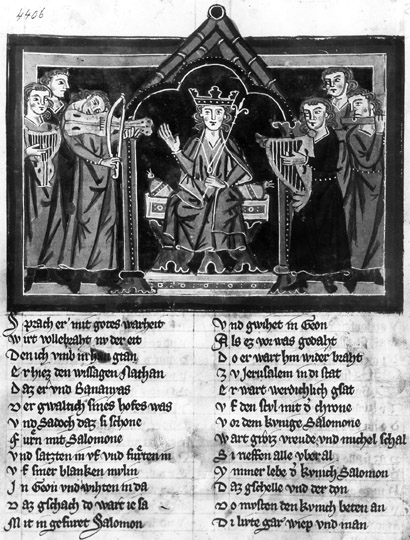 4406
Sprach er mit gotes warheit
Wirt vollebraht nv der eit
Den ich vmb in han gtan
Er hiez den wissagen Nathan
Daz er vnd Bananyas
Der gwaltich sines hofes was
Vnd Sadoch daz si schone
Fůrn mit Salomone
Vnd satzten in vf vnd fůrten in
Vf siner blanken mvlin
In Geon vnd wihten in da
Daz gschach do wart ie sa
Mit in gefuret Salomon
Vnd gwihet in Geon
Als ez vor was gedaht
Do er wart hin wider braht
Zv Jerusalem in di stat
Er wart werdichlich gsat
Vf den stvl mit d chrone
Vor dem kvnige Salomone
Wart groz vreude vnd michol schal
Si rieffen alle vber al
Ymmer lebe d kvnich Salomon
Daz gschelle vnd der don
Do mvsten den kvnich beten an
Di livte gar wiep vnd man